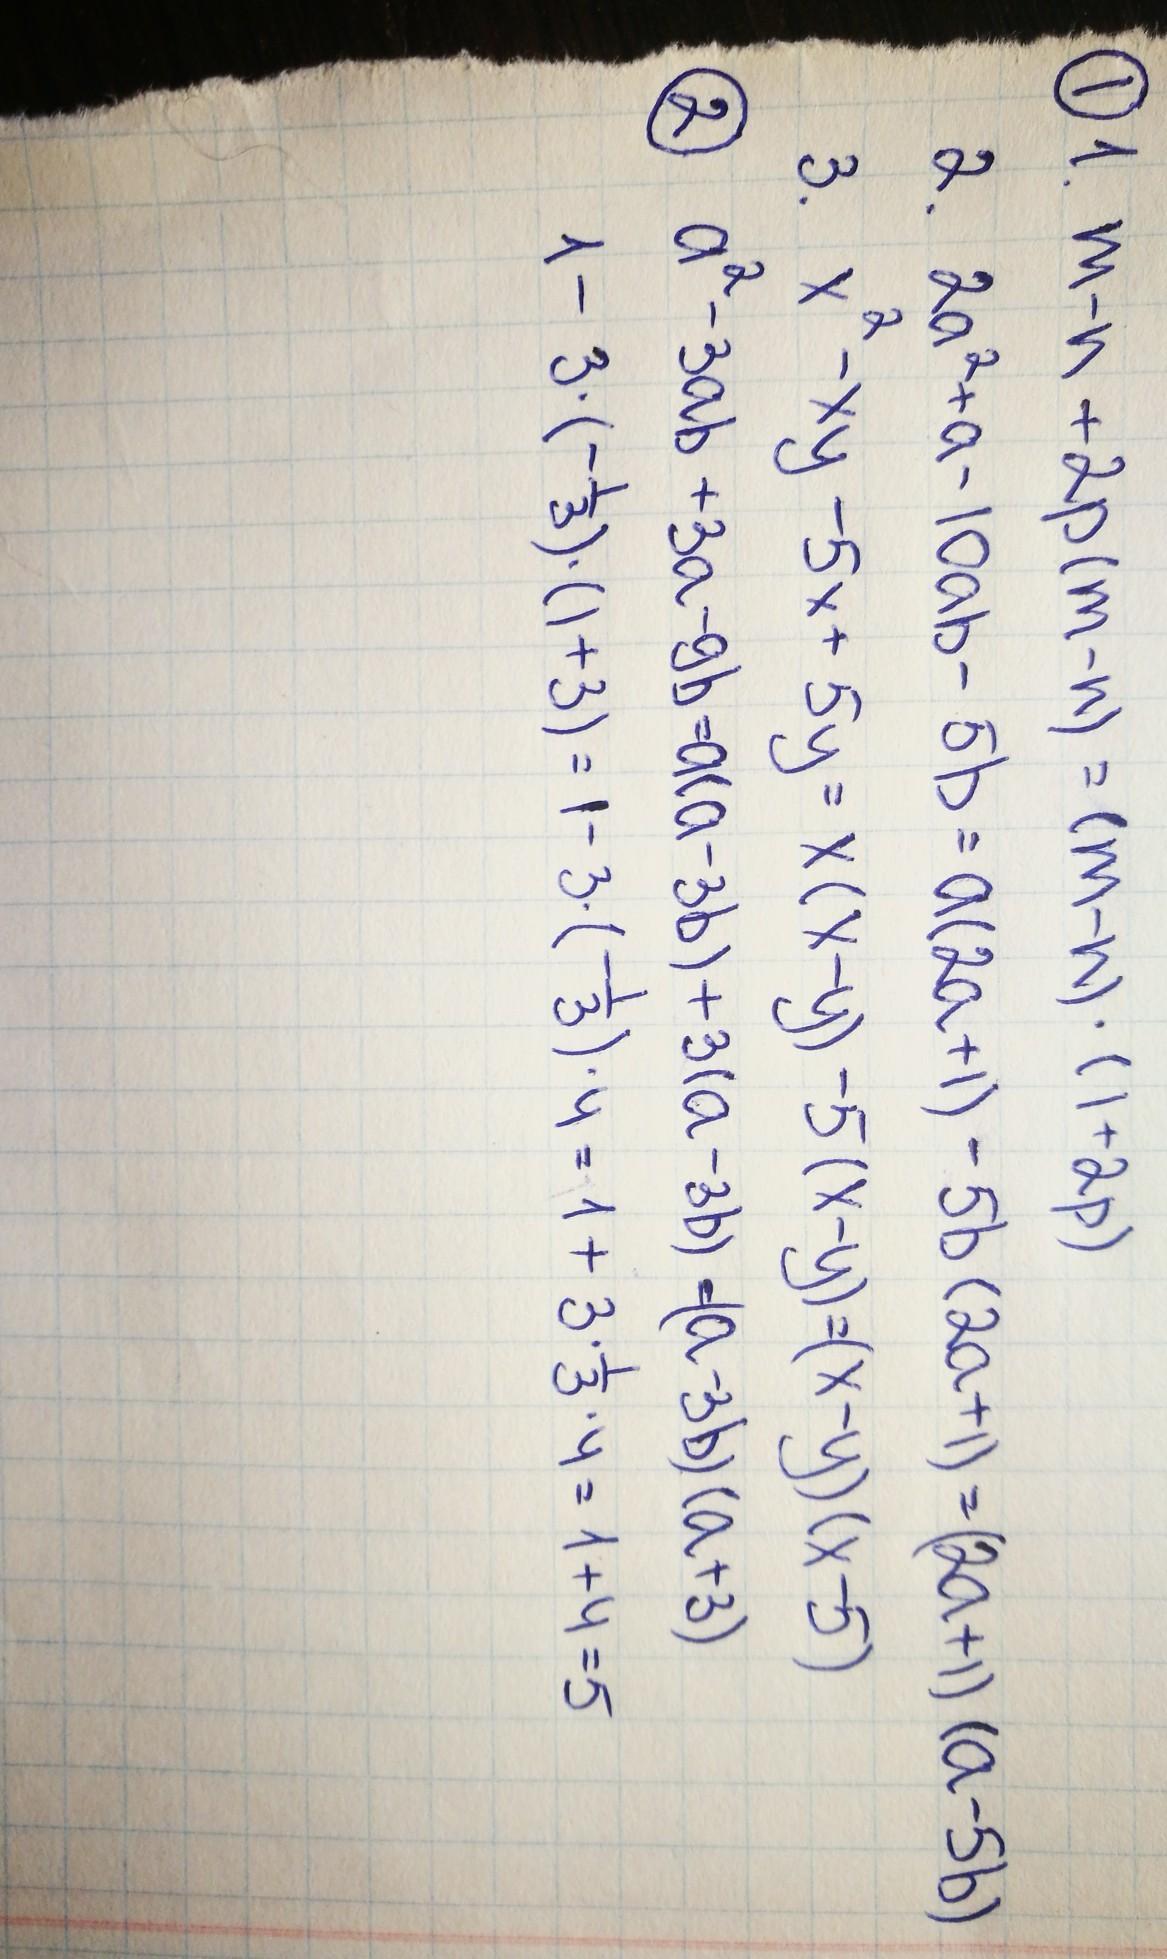 ① 1. m-n+2p(m-n)=(m-n)·(1+2p)
2. 2a²+a-10ab-5b=a(2a+1)-5b(2a+1)=(2a+1)(a-5b)
3. x²-xy-5x+5y=x(x-y)-5(x-y)=(x-y)(x-5)
② a²-3ab+3a-9b=a(a-3b)+3(a-3b)=(a-3b)(a+3)
1-3·(-1/3)·(1+3)=1-3·(-1/3)·4=1+3·1/3·4=1+4=5